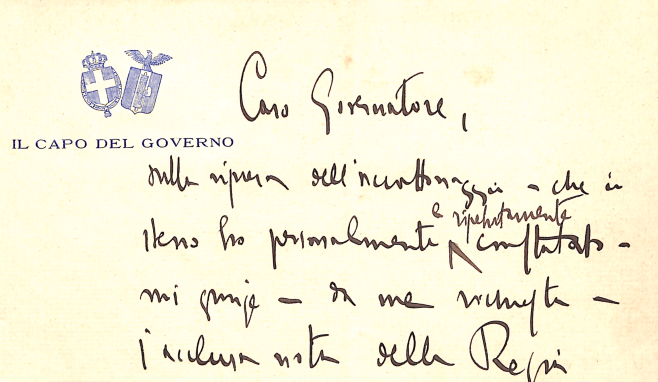 IL CAPO DEL GOVERNO
Caro Governatore,
sulla ripresa dell'accattonaggio – che io
stesso ho personalmente e ripetutamente constatato –
mi giunge – da me richiesta –
l'acclusa nota della Regia